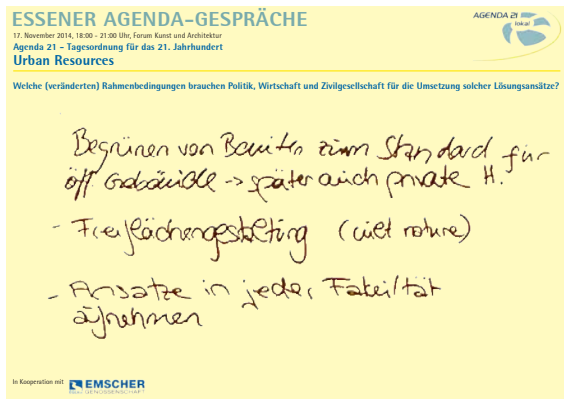 ESSENER AGENDA-GESPRÄCHE
17. November 2014, 18:00 - 21:00 Uhr, Forum Kunst und Architektur
Agenda 21 - Tagesordnung für das 21. Jahrhundert
Urban Resources
AGENDA 21
lokal
Welche (veränderten) Rahmenbedingungen brauchen Politik, Wirtschaft und Zivilgesellschaft für die Umsetzung solcher Lösungsansätze?
Begrünen von Bauten zum Standard für
öff. Gebäude -> später auch private H.
- Freiflächengestaltung (wilt nature)
- Ansätze in jeder Fakultät
aufnehmen
In Kooperation mit
EMSCHER
GENOSSENSCHAFT